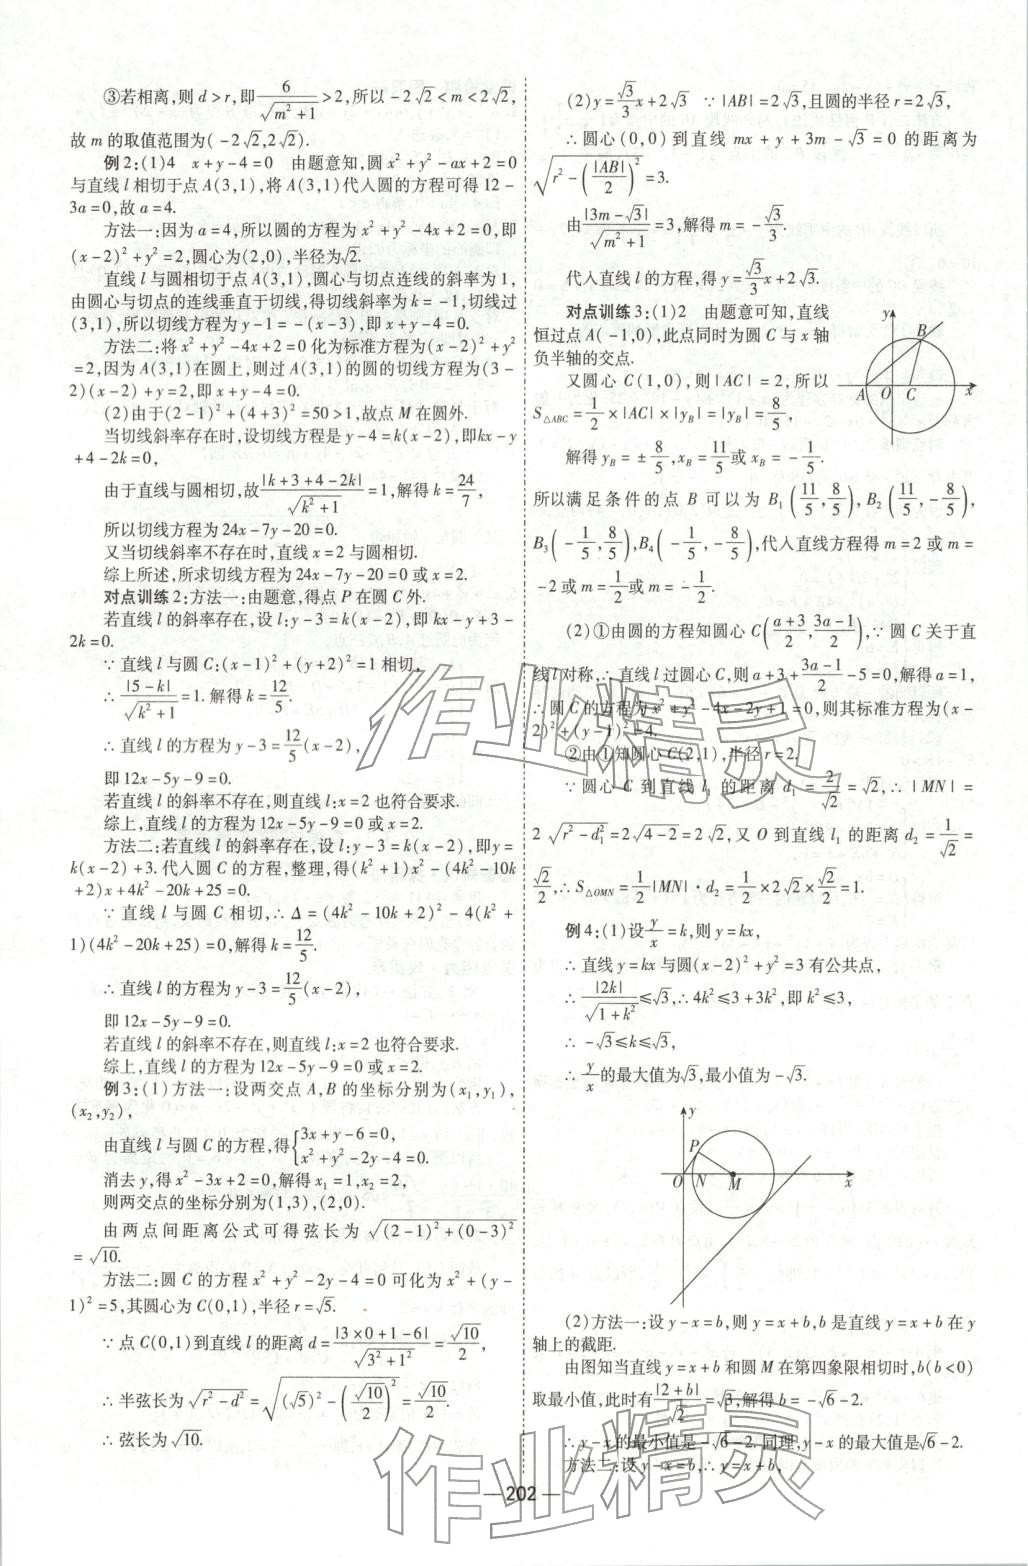 ③若相离,则 d>r,即 6/√(m²+1) >2,所以 -2√2<m<2√2,
故 m 的取值范围为(-2√2,2√2).
例 2:(1)4 x+y-4=0 由题意知,圆 x²+y²-ax+2=0
与直线 l 相切于点 A(3,1),将 A(3,1)代人圆的方程可得 12-
3a=0,故 a=4.
方法一:因为 a=4,所以圆的方程为 x²+y²-4x+2=0,即
(x-2)²+y²=2,圆心为(2,0),半径为√2.
直线 l 与圆相切于点 A(3,1),圆心与切点连线的斜率为 1,
由圆心与切点的连线垂直于切线,得切线斜率为 k=-1,切线过
(3,1),所以切线方程为 y-1=-(x-3),即 x+y-4=0.
方法二:将 x²+y²-4x+2=0 化为标准方程为(x-2)²+y²
=2,因为 A(3,1)在圆上,则过 A(3,1)的圆的切线方程为(3-
2)(x-2)+y=2,即 x+y-4=0.
(2)由于(2-1)²+(4+3)²=50>1,故点 M 在圆外.
当切线斜率存在时,设切线方程是 y-4=k(x-2),即kx-y
+4-2k=0,
由于直线与圆相切,故 |k+3+4-2k|/√(k²+1) =1,解得 k=24/7,
所以切线方程为 24x-7y-20=0.
又当切线斜率不存在时,直线 x=2 与圆相切.
综上所述,所求切线方程为 24x-7y-20=0 或 x=2.
对点训练 2:方法一:由题意,得点 P 在圆 C 外.
若直线 l 的斜率存在,设 l:y-3=k(x-2),即 kx-y+3-
2k=0.
∵直线 l 与圆 C:(x-1)²+(y+2)²=1 相切,
∴ |5-k|/√(k²+1) =1. 解得 k=12/5.
∴直线 l 的方程为 y-3=12/5(x-2),
即 12x-5y-9=0.
若直线 l 的斜率不存在,则直线 l:x=2 也符合要求.
综上,直线 l 的方程为 12x-5y-9=0 或 x=2.
方法二:若直线 l 的斜率存在,设 l:y-3=k(x-2),即y=
k(x-2)+3.代人圆 C 的方程,整理,得(k²+1)x²-(4k²-10k
+2)x+4k²-20k+25=0.
∵直线 l 与圆 C 相切,∴Δ=(4k²-10k+2)²-4(k²+
1)(4k²-20k+25)=0,解得 k=12/5.
∴直线 l 的方程为 y-3=12/5(x-2),
即 12x-5y-9=0.
若直线 l 的斜率不存在,则直线 l:x=2 也符合要求.
综上,直线 l 的方程为 12x-5y-9=0 或 x=2.
例 3:(1)方法一:设两交点 A,B 的坐标分别为(x₁,y₁),
(x₂,y₂),
由直线 l 与圆 C 的方程,得{3x+y-6=0, x²+y²-2y-4=0.
消去 y,得 x²-3x+2=0,解得 x₁=1,x₂=2,
则两交点的坐标分别为(1,3),(2,0).
由两点间距离公式可得弦长为 √((2-1)²+(0-3)²)
=√10.
方法二:圆 C 的方程 x²+y²-2y-4=0 可化为 x²+(y-
1)²=5,其圆心为 C(0,1),半径 r=√5.
∵点 C(0,1)到直线 l 的距离 d=|3×0+1-6|/√(3²+1²) =√10/2,
∴半弦长为 √(r²-d²)=√((√5)²-(√10/2)²)=√10/2.
∴弦长为 √10.
(2)y=√3/3 x+2√3 ∵|AB|=2√3,且圆的半径 r=2√3,
∴圆心(0,0)到直线 mx+y+3m-√3=0 的距离为
√(r²-(|AB|/2)²)=3.
由 |3m-√3|/√(m²+1) =3,解得 m=-√3/3.
代人直线 l 的方程,得 y=√3/3 x+2√3.
对点训练 3:(1)2 由题意可知,直线
恒过点 A(-1,0),此点同时为圆 C 与 x 轴
负半轴的交点.
又圆心 C(1,0),则|AC|=2,所以
S△ABC=1/2×|AC|×|y_B|=|y_B|=8/5,
y
B
A
O
C
x
解得 y_B=±8/5,x_B=11/5或 x_B=-1/5.
所以满足条件的点 B 可以为 B₁(11/5,8/5),B₂(11/5,-8/5),
B₃(-1/5,8/5),B₄(-1/5,-8/5),代人直线方程得 m=2 或 m=
-2 或 m=1/2或 m=-1/2.
(2)①由圆的方程知圆心 C((a+3)/2,(3a-1)/2),∵圆 C 关于直
线 l 对称,∴直线 l 过圆心 C,则 a+3+(3a-1)/2-5=0,解得 a=1,
∴圆 C 的方程为 x²+y²-4x-2y+1=0,则其标准方程为(x-
2)²+(y-1)²=4.
②由①知圆心 C(2,1),半径 r=2.
∵圆心 C 到直线 l₁ 的距离 d₁=2/√2=√2,∴|MN|=
2√(r²-d₁²)=2√(4-2)=2√2,又 O 到直线 l₁ 的距离 d₂=1/√2=
√2/2,∴S△OMN=1/2|MN|·d₂=1/2×2√2×√2/2=1.
例 4:(1)设 y/x=k,则 y=kx,
∴直线 y=kx 与圆(x-2)²+y²=3 有公共点,
∴ |2k|/√(1+k²) ≤√3,∴4k²≤3+3k²,即 k²≤3,
∴-√3≤k≤√3,
∴ y/x 的最大值为√3,最小值为-√3.
y
P
O
N
M
x
(2)方法一:设 y-x=b,则 y=x+b,b 是直线 y=x+b 在 y
轴上的截距.
由图知当直线 y=x+b 和圆 M 在第四象限相切时,b(b<0)
取最小值,此时有 |2+b|/√2 =√3,解得 b=-√6-2.
∴y-x 的最小值是-√6-2.同理,y-x 的最大值是√6-2.
方法二:设 y-x=b,∴y=x+b,
— 202 —
作业精灵
作业精灵